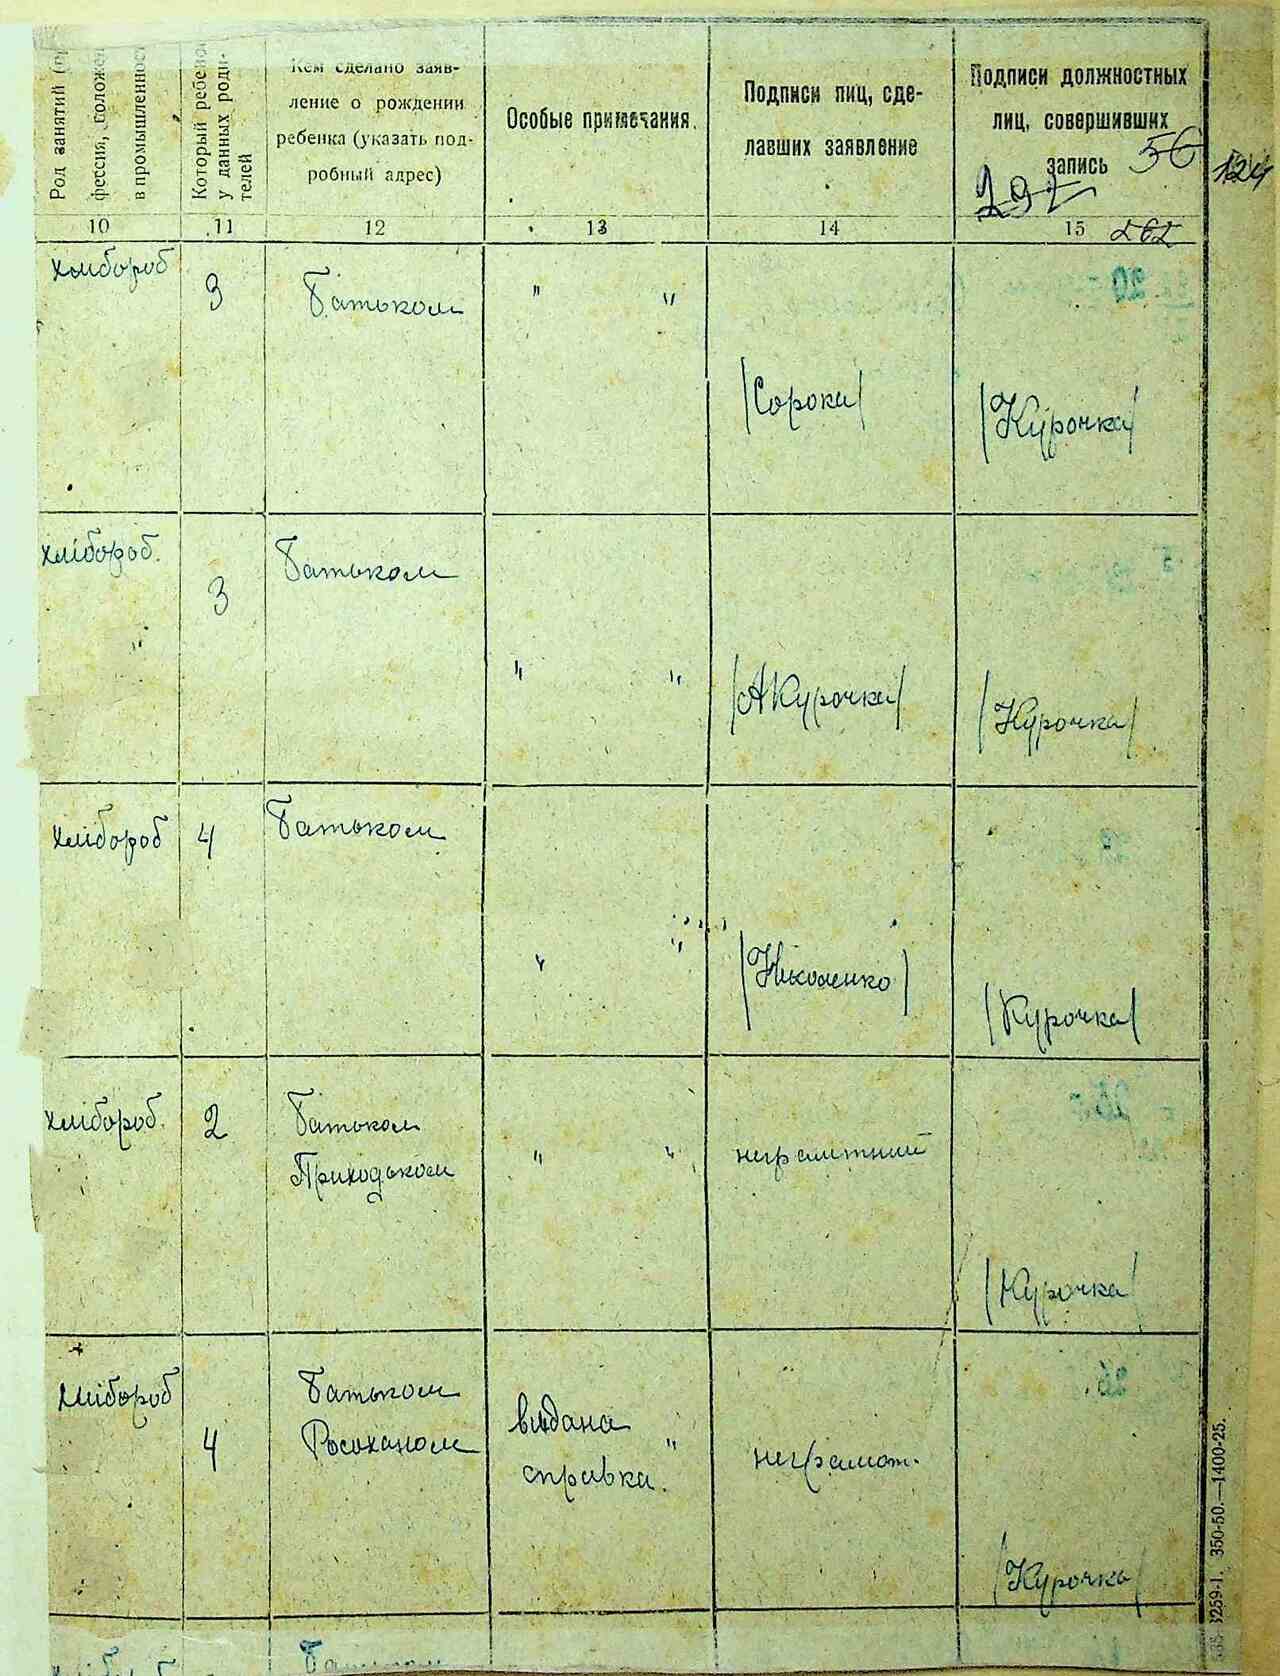 Род занятий
фессия, положен
в промышленнос
Который ребен
у данных роди-
телей
Кем сделано заяв-
ление о рождении
ребенка (указать под-
робный адрес)
Особые примечания.
Подписи лиц, сде-
лавших заявление
Подписи должностных
лиц, совершивших
запись
56
124
297
10 11 12 13 14 15 262
хлібороб 3 Батьком " "
/Сорока/ /Курочка/
хлібороб. Батьком
3
" " /А Курочка/ /Курочка/
хлібороб 4 Батьком
" " /Ніколенко/
/Курочка/
хлібороб. 2 Батьком
Приходьком " " неграмтний
/Курочка/
хлібороб Батьком
4 Росоханом видана "
справка. неграмот.
/Курочка/
3259-1. 350-50.—1400-25.
хлібороб Батьком